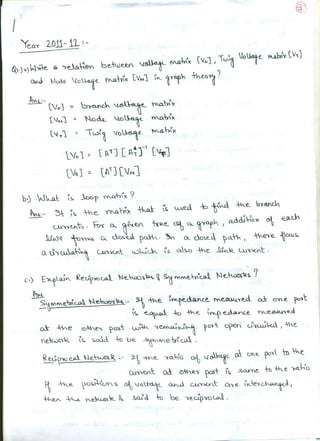 Year 2011-12:-
Q1.) a) Write a relation between voltage matrix [Vb], Twig Voltage matrix [Vt]
and Node Voltage matrix [Vn] in graph theory?
Ans:- [Vb] = branch voltage matrix
[Vn] = Node voltage matrix
[Vt] = Twig voltage matrix
[Vb] = [A^T] [A_t^T]^-1 [Vt]
[Vb] = [A^T] [Vn]
b) What is loop matrix?
Ans- It is the matrix that is used to find the branch
currents. For a given tree of a graph, addition of each
link forms a closed path. In a closed path, there flows
a circulating current which is also the link current.
c.) Explain Reciprocal Networks & Symmetrical Networks?
Ans
Symmetrical Networks:- If the impedance measured at one port
is equal to the impedance measured
at the other port with remaining port open circuited, the
network is said to be symmetrical.
Reciprocal Network:- If the ratio of voltage at one port to the
current at other port is same to the ratio
if the positions of voltage and current are interchanged,
then the network is said to be reciprocal.